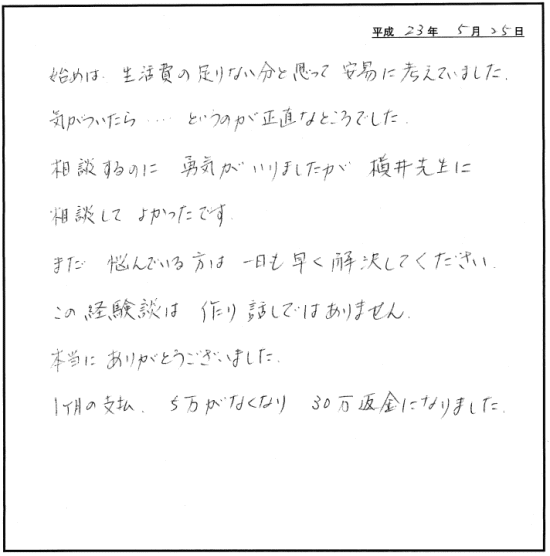 平成 23年 5月 25日
始めは 生活費の足りない分と思って 安易に考えていました.
気がついたら‥‥ というのが正直なところでした.
相談するのに 勇気がいりましたが 槇井先生に
相談して よかったです.
まだ 悩んでいる方は 一日も早く解決してください.
この経験談は 作り話しではありません.
本当に ありがとうございました.
1ヶ月の支払. 5万がなくなり 30万返金になりました.